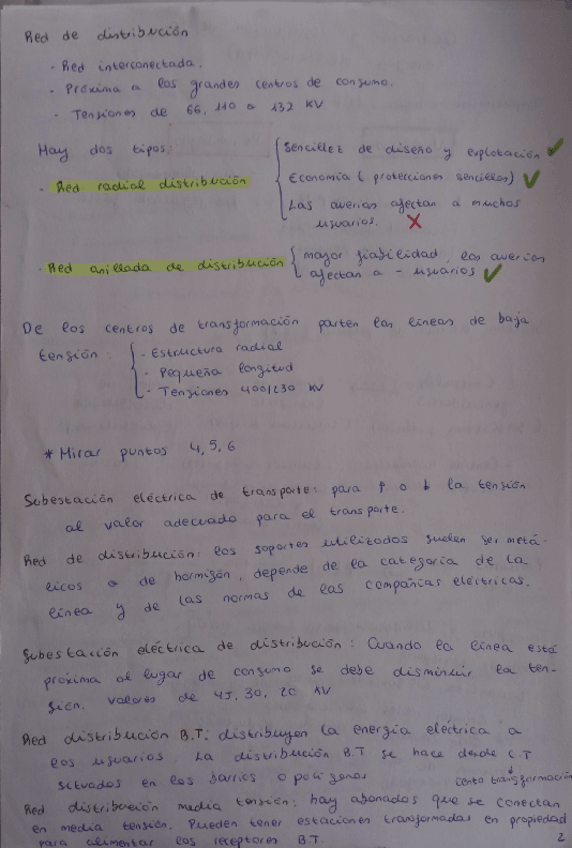 Red de distribución
- Red interconectada.
- Próxima a los grandes centros de consumo.
- Tensiones de 66, 110 o 132 KV
Hay dos tipos:
- Red radial distribución
Sencillez de diseño y explotación ✓
Economía (protecciones sencillas) ✓
Las averias afectan a muchos
usuarios. ✗
- Red anillada de distribución
mayor fiabilidad, las averias
afectan a - usuarios ✓
De los centros de transformación parten las lineas de baja
tensión:
- Estructura radial
- Pequeña longitud
- Tensiones 400/230 KV
* Mirar puntos 4, 5, 6
Subestación eléctrica de transporte: para ↑ o ↓ la tensión
al valor adecuado para el transporte.
Red de distribución: los soportes utilizados suelen ser metá-
licos o de hormigón, depende de la categoria de la
línea y de las normas de las compañias eléctricas.
Subestación eléctrica de distribución: Cuando la línea está
próxima al lugar de consumo se debe disminuir la ten-
sión. Valores de 45, 30, 20 KV
Red distribución B.T: distribuyen la energía eléctrica a
los usuarios. La distribución B.T se hace desde C.T
situados en los barrios o polígonos
cento transformación
Red distribución media tensión: hay abonados que se conectan
en media tensión. Pueden tener estaciones transformadas en propiedad
para alimentar los receptores B.T.
2